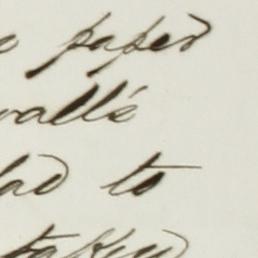 paper
walls
had to
taken